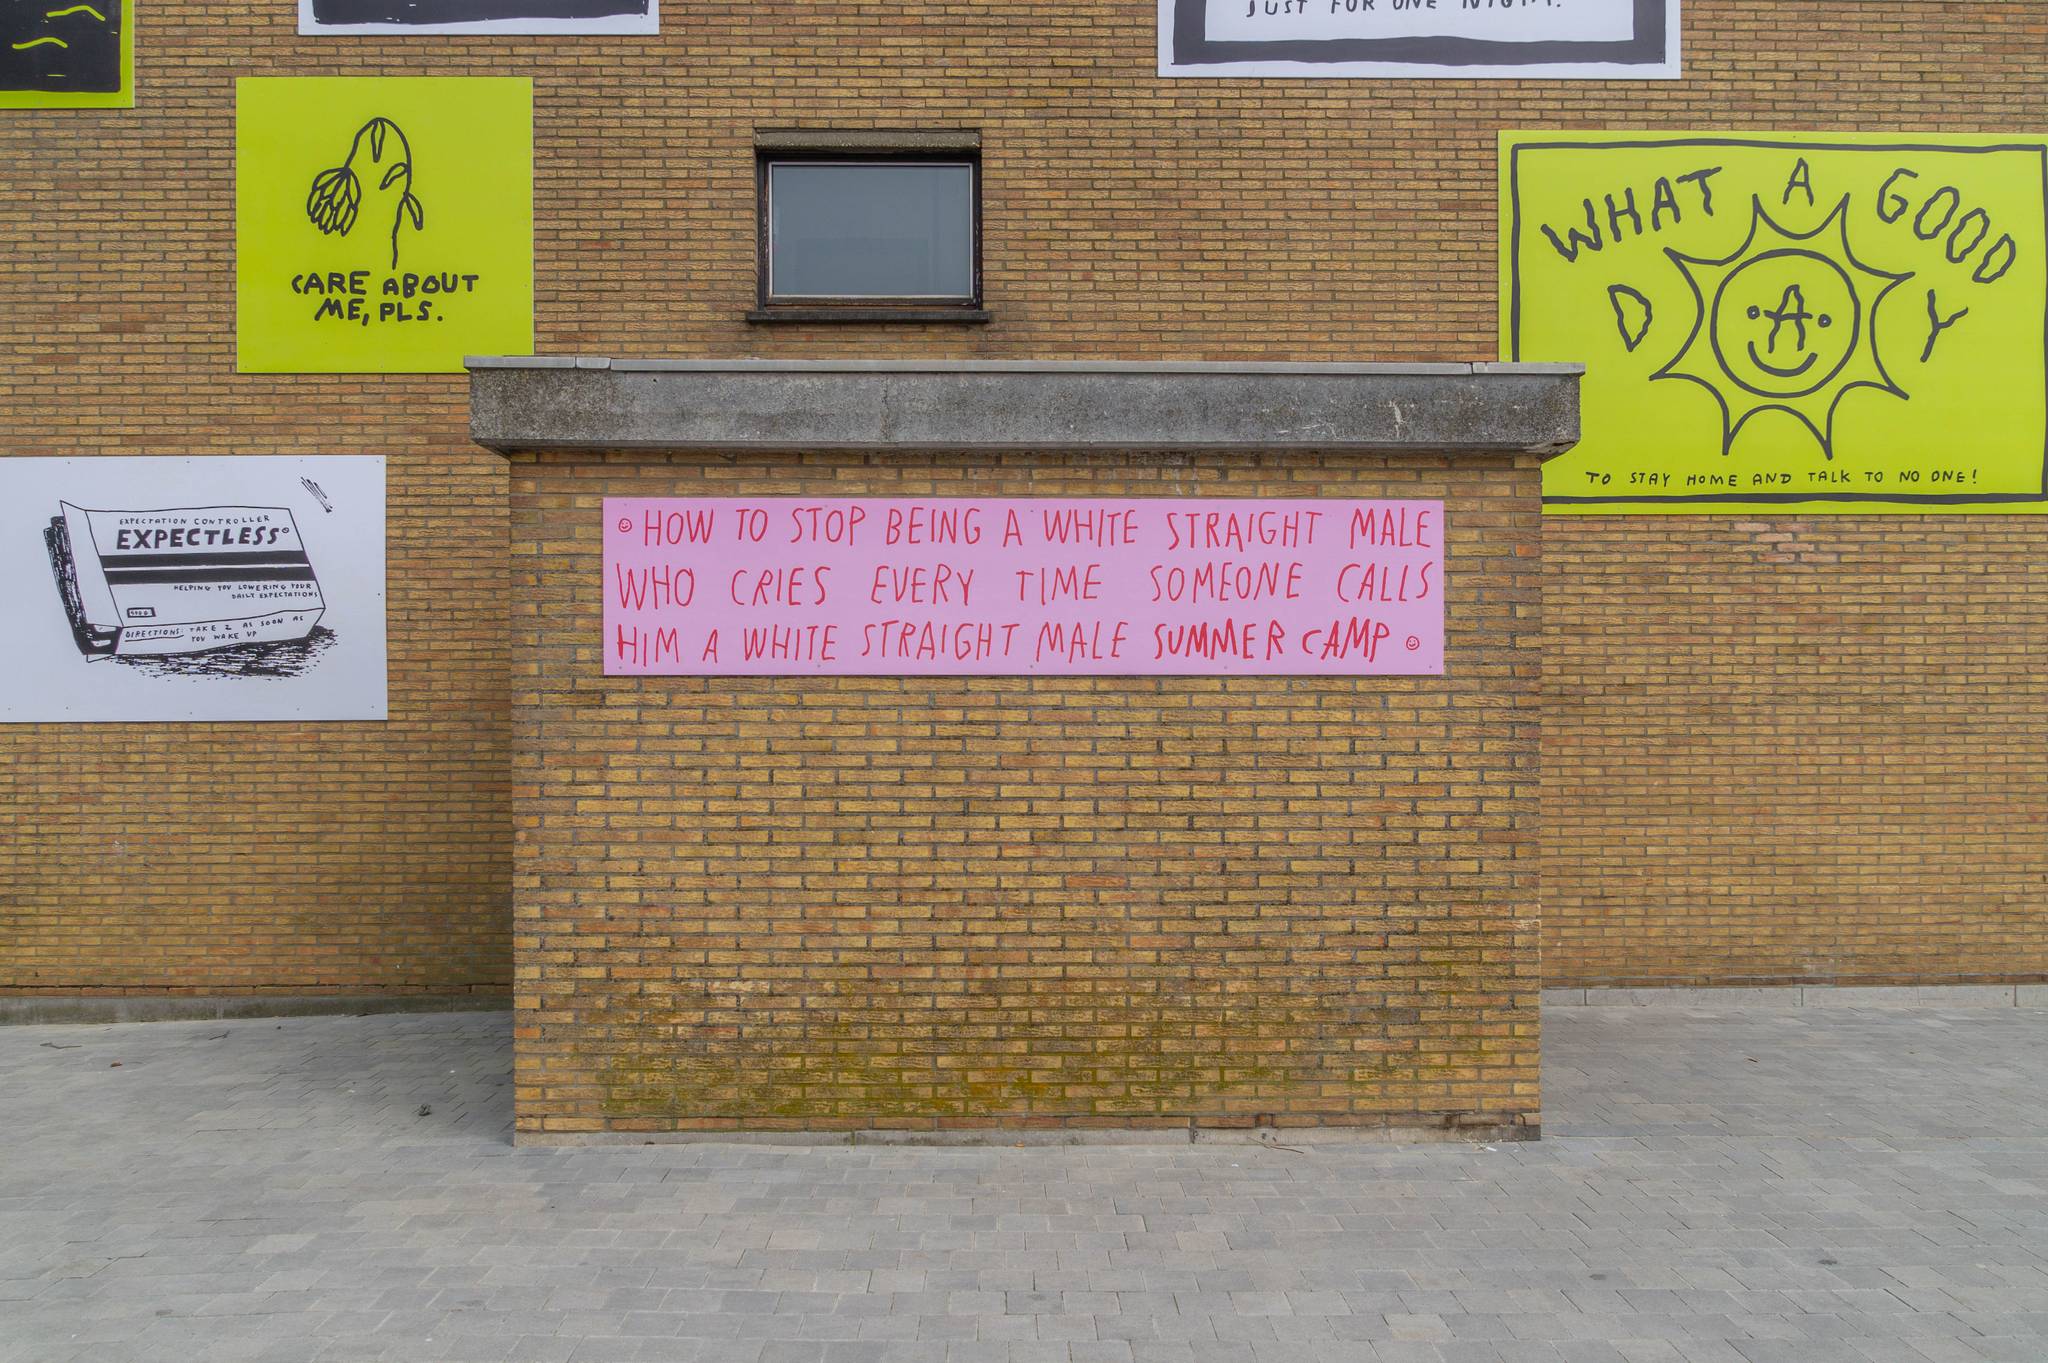 JUST FOR ONE NIGHT.
CARE ABOUT
ME, PLS.
WHAT A GOOD
DAY
TO STAY HOME AND TALK TO NO ONE!
EXPECTATION CONTROLLER
EXPECTLESS
HELPING YOU LOWERING YOUR
DAILY EXPECTATIONS
DIRECTIONS: TAKE 2 AS SOON AS
YOU WAKE UP
HOW TO STOP BEING A WHITE STRAIGHT MALE
WHO CRIES EVERY TIME SOMEONE CALLS
HIM A WHITE STRAIGHT MALE SUMMER CAMP